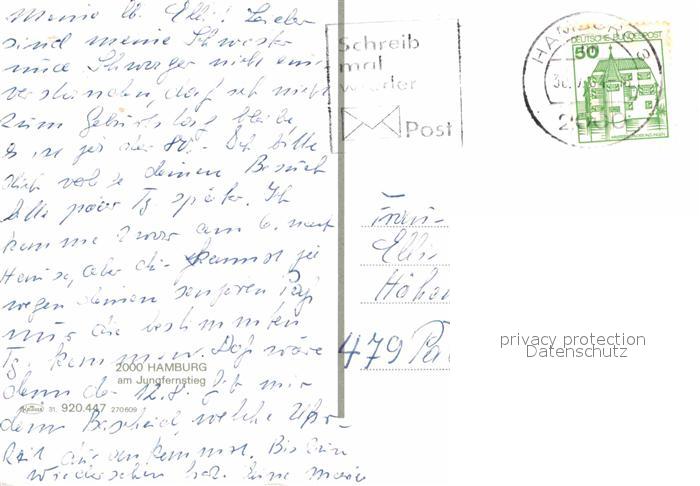 Meine lb. Elli! Leider
sind meine Schwester
und Schwager nicht ein-
verstanden, daß ich nicht
zum Geburtstag bleibe
es ist ja der 80. Ich bitte
dich deinen Besuch
paar Tg. später. Ich
komme zwar am 6. nach
Hause, aber du kannst ja
wegen deinen
nur die bestimmten
Tg. kommen. Das wäre
dann der 12.8. Gib mir
dann Bescheid, welche Uhr-
zeit du ankommst. Bis
wiedersehen
2000 HAMBURG
am Jungfernstieg
31. 920.447 270609
Schreib
mal
wieder
Post
HAMBURG
2000
50
DEUTSCHE BUNDESPOST
Frau
Elli
479 Pa
privacy protection
Datenschutz